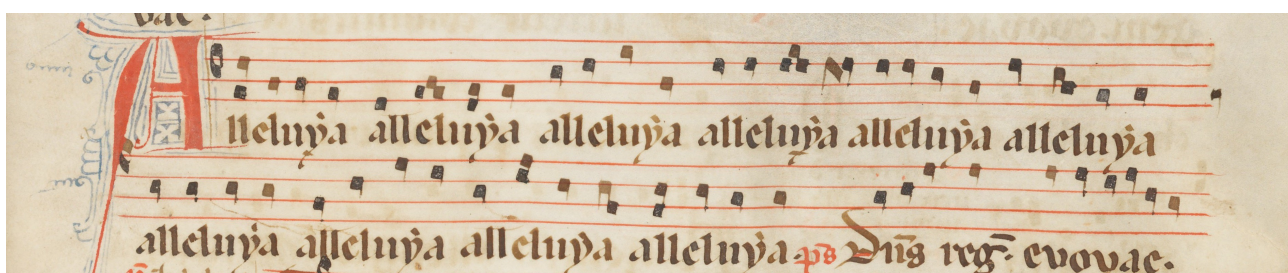 vae.
Alleluÿa alleluÿa alleluÿa alleluÿa alleluÿa alleluÿa
alleluÿa alleluÿa alleluÿa alleluÿa. ps Dn̄s reḡ. evovae.